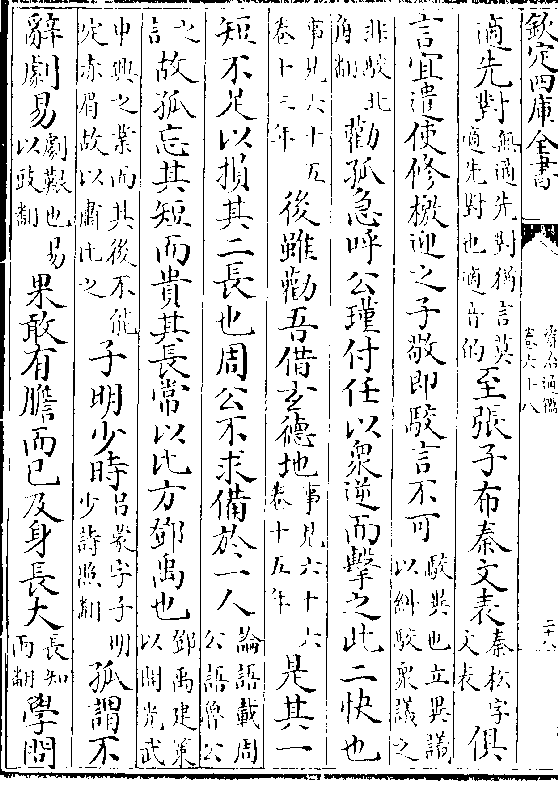 欽定四庫全書
資治通鑑
卷六十八
適先對無適先對猶言莫適先對也適音的至張子布秦文表秦松字文表俱
言宜遣使修檄迎之子敬即駮言不可駮異也立異議以糾駮衆議之
非駮北角翻勸孤急呼公瑾付任以衆逆而擊之此二快也
事見六十五卷十三年後雖勸吾借玄德地事見六十六卷十五年是其一
短不足以損其二長也周公不求備於一人論語載周公語魯公
之言故孤忘其短而貴其長常以比方鄧禹也鄧禹建策以開光武
中興之業而其後不能定赤眉故以肅比之子明少時呂蒙字子明少詩照翻孤謂不
辭劇易劇艱也易以豉翻果敢有膽而已及身長大長知兩翻學問